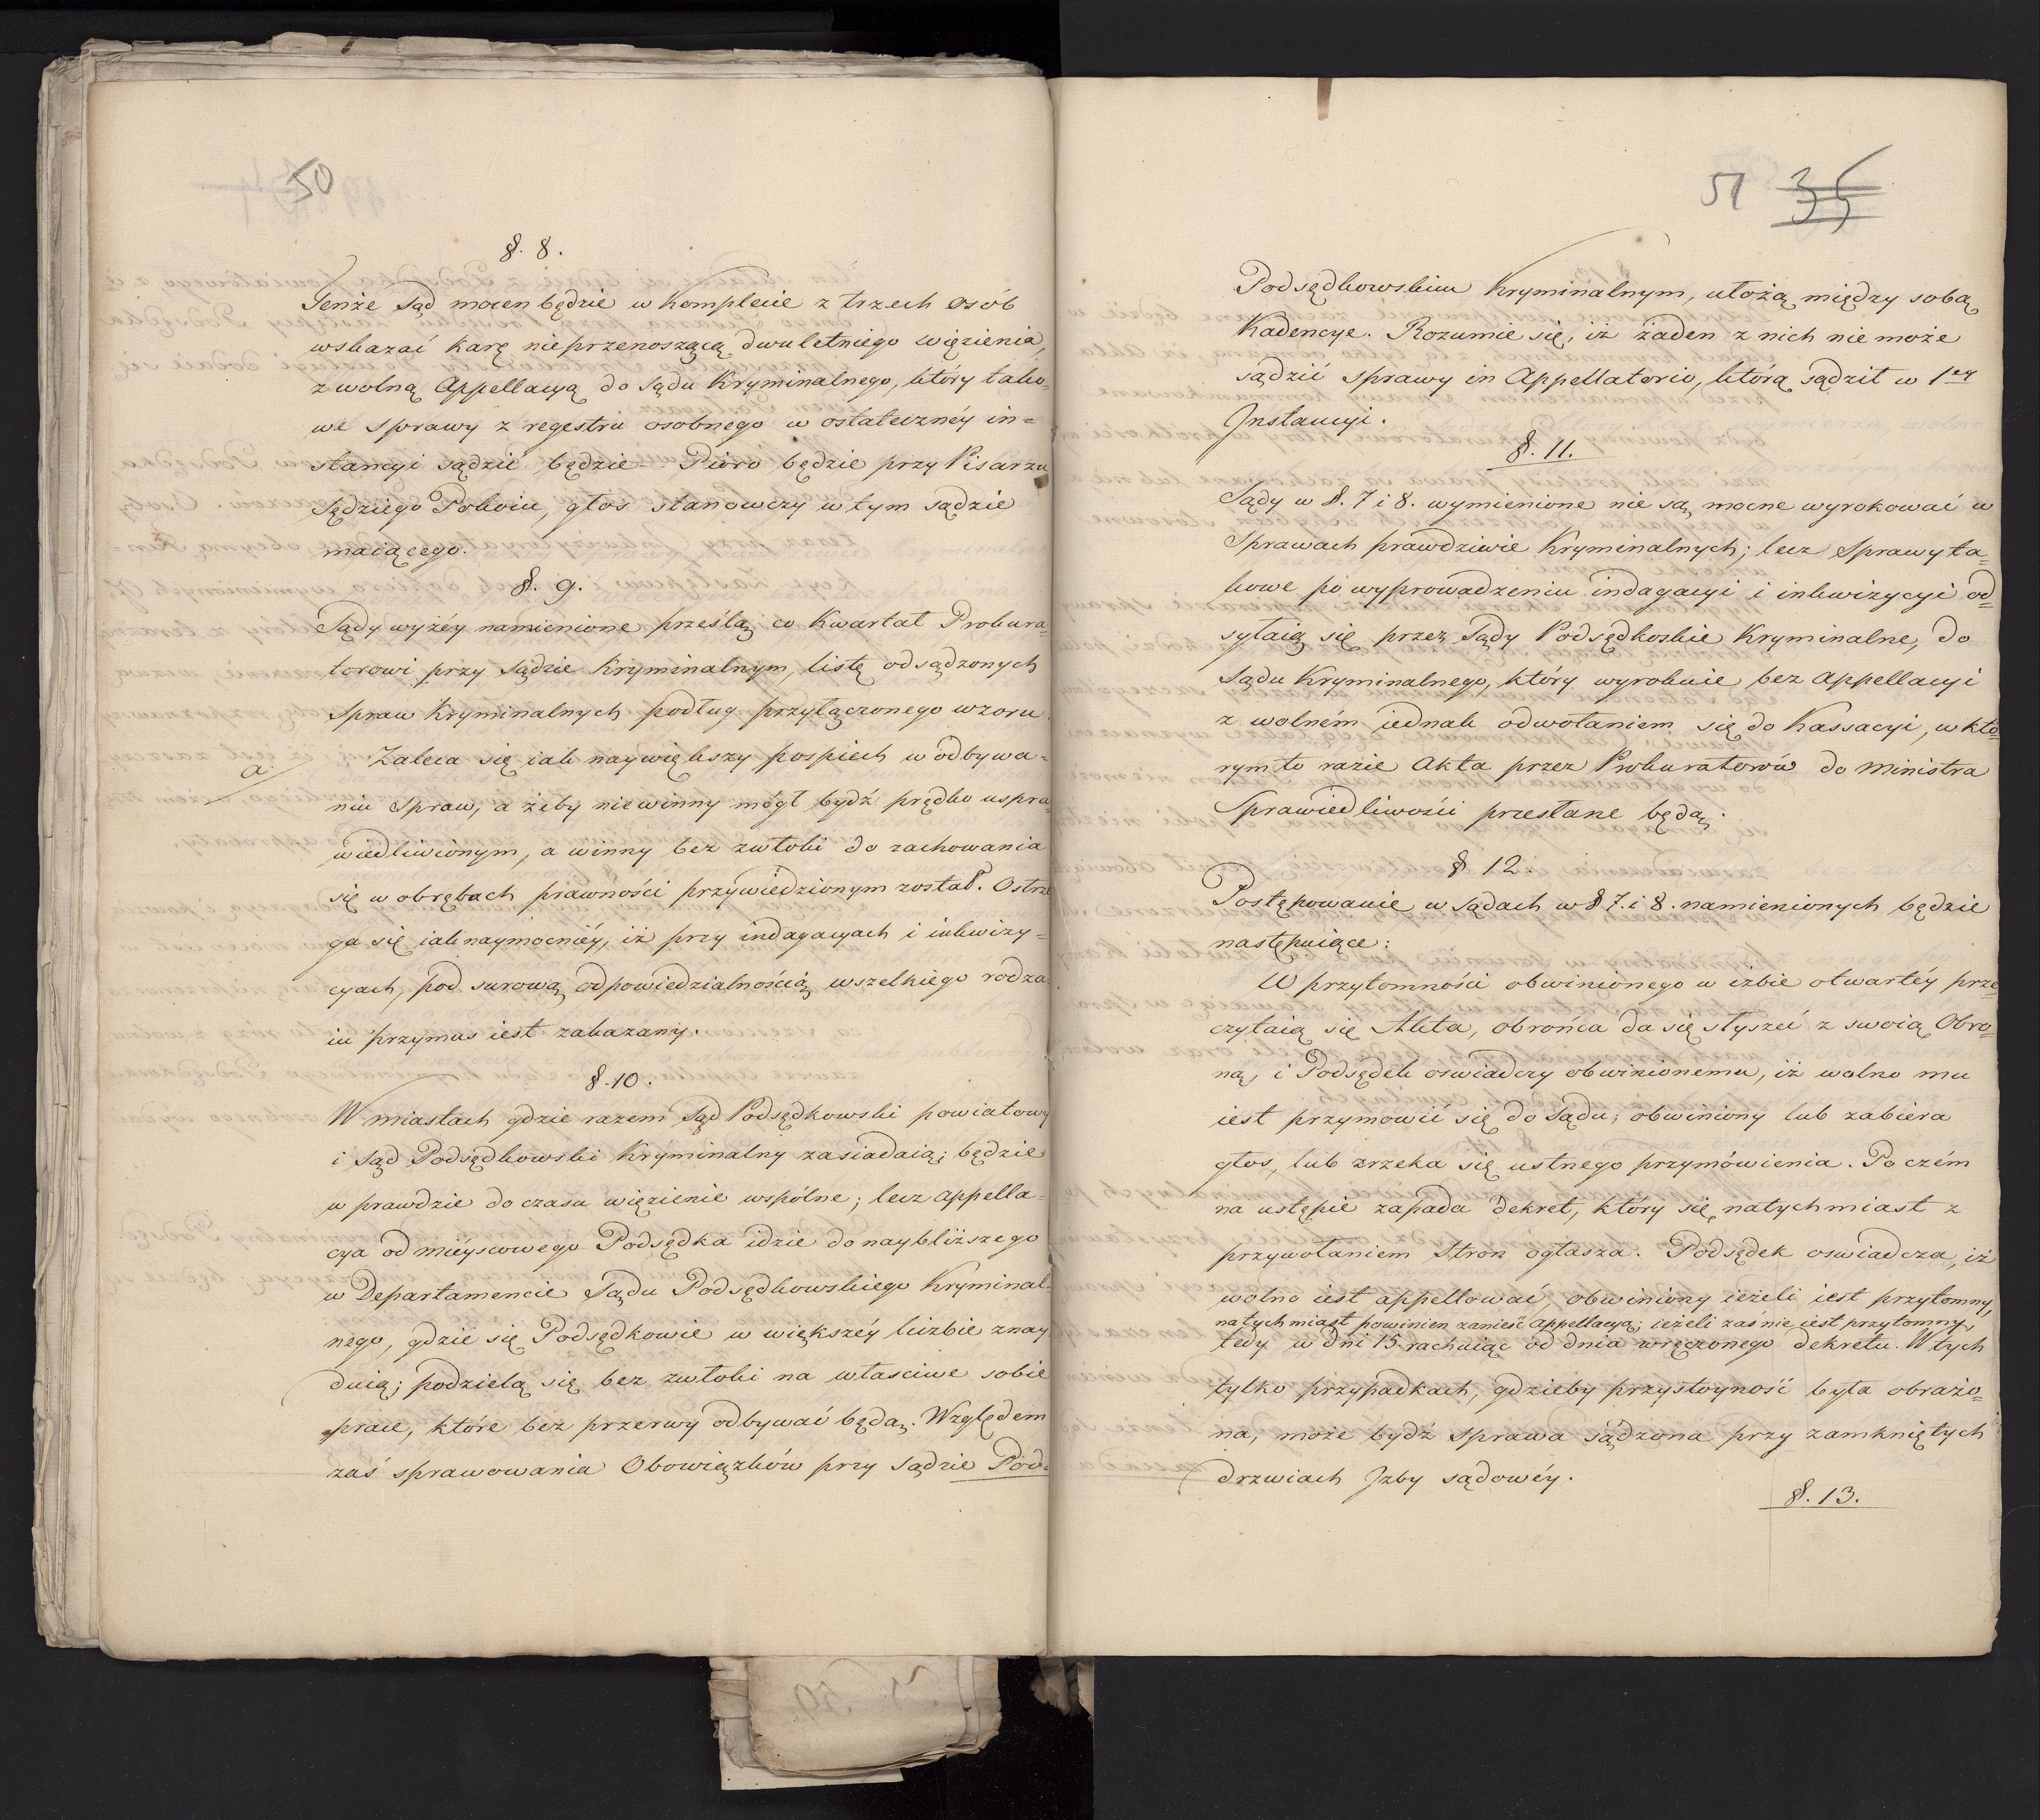 50
§. 8.
Tenże Sąd mocen będzie w Komplecie z trzech osób
wskazać karę nieprzenoszącą dwuletniego więzienia,
z wolną Appellacyą do Sądu Kryminalnego, który tako-
we sprawy z regestru osobnego w ostateczney in=
stancyi sądzić będzie. Pióro będzie przy Pisarzu
Sędziego Pokoiu, głos stanowczy w tym sądzie
maiącego.
§. 9.
Sądy wyżéy namienione prześlą co Kwartał Prokura-
torowi przy Sądzie Kryminalnym, listę odsądzonych
spraw Kryminalnych podług przyłączonego wzoru.
a. Zaleca się iak naywiększy pospiech w odbywa-
niu Spraw, a żeby niewinny mógł bydź prędko uspra-
wiedliwionym, a winny bez zwłoki do zachowania
się w obrębach prawności przywiedzionym został. Ostrze
ga się iak naymocniéy, iż przy indagacyach i inkwizy=
cyach, pod surową odpowiedzialnością wszelkiego rodza
iu przymus iest zakazany.
§. 10.
W miastach gdzie razem Sąd Podsędkowski powiatowy
i Sąd Podsędkowski Kryminalny zasiadaią; będzie
w prawdzie do czasu więzienie wspólne; lecz appella-
cya od miéyscowego Podsędka idzie do naybliższego
w Departamencie Sądu Podsędkowskiego Kryminal-
nego, gdzie się Podsędkowie w większéy liczbie znay
duią; podzielą się bez zwłoki na własciwe sobie
prace, które bez przerwy odbywać będą. Względem
zaś sprawowania Obowiązków przy Sądzie Pod-
51 35
Podsędkowskim Kryminalnym, ułożą między sobą
Kadencye. Rozumie się, iż żaden z nich nie może
sądzić sprawy in Appellatorio, którą sądził w 1ey
Instancyi.
§. 11.
Sądy w §. 7 i 8. wymienione nie są mocne wyrokować w
Sprawach prawdziwie Kryminalnych; lecz Sprawy ta=
kowe po wyprowadzeniu indagacyi i inkwizycyi od=
syłaią się przez Sądy Podsędkoskie Kryminalne, do
Sądu Kryminalnego, który wyrokuie bez appellacyi
z wolném iednak odwołaniem się do Kassacyi, w któ=
rym to razie Akta przez Prokuratorów do Ministra
Sprawiedliwości przesłane będą.
§ 12.
Postępowanie w Sądach w § 7. i 8. namienionych będzie
następuiące:
W przytomności obwinionego w izbie otwartéy prze=
czytaią się Akta, obrońca da się słyszeć z swoią Obro=
ną, i Podsędek oswiadczy obwinionemu, iż wolno mu
iest przymowić się do Sądu; obwiniony lub zabiera
głos, lub zrzeka się ustnego przymówienia. Po czém
na ustępie zapada Dekret, który się natychmiast z
przywołaniem Stron ogłasza. Podsędek oswiadcza, iż
wolno iest appellować, obwiniony ieżeli iest przytomny,
natychmiast powinien zanieść Appellacyą; ieżeli zaś nie iest przytomny,
tedy w dni 15 rachuiąc od dnia wręczonego dekretu. W tych
tylko przypadkach, gdzieby przystoyność była obrażo=
na, może bydź sprawa sądzona przy zamkniętych
drzwiach Jzby sądowéy.
§. 13.